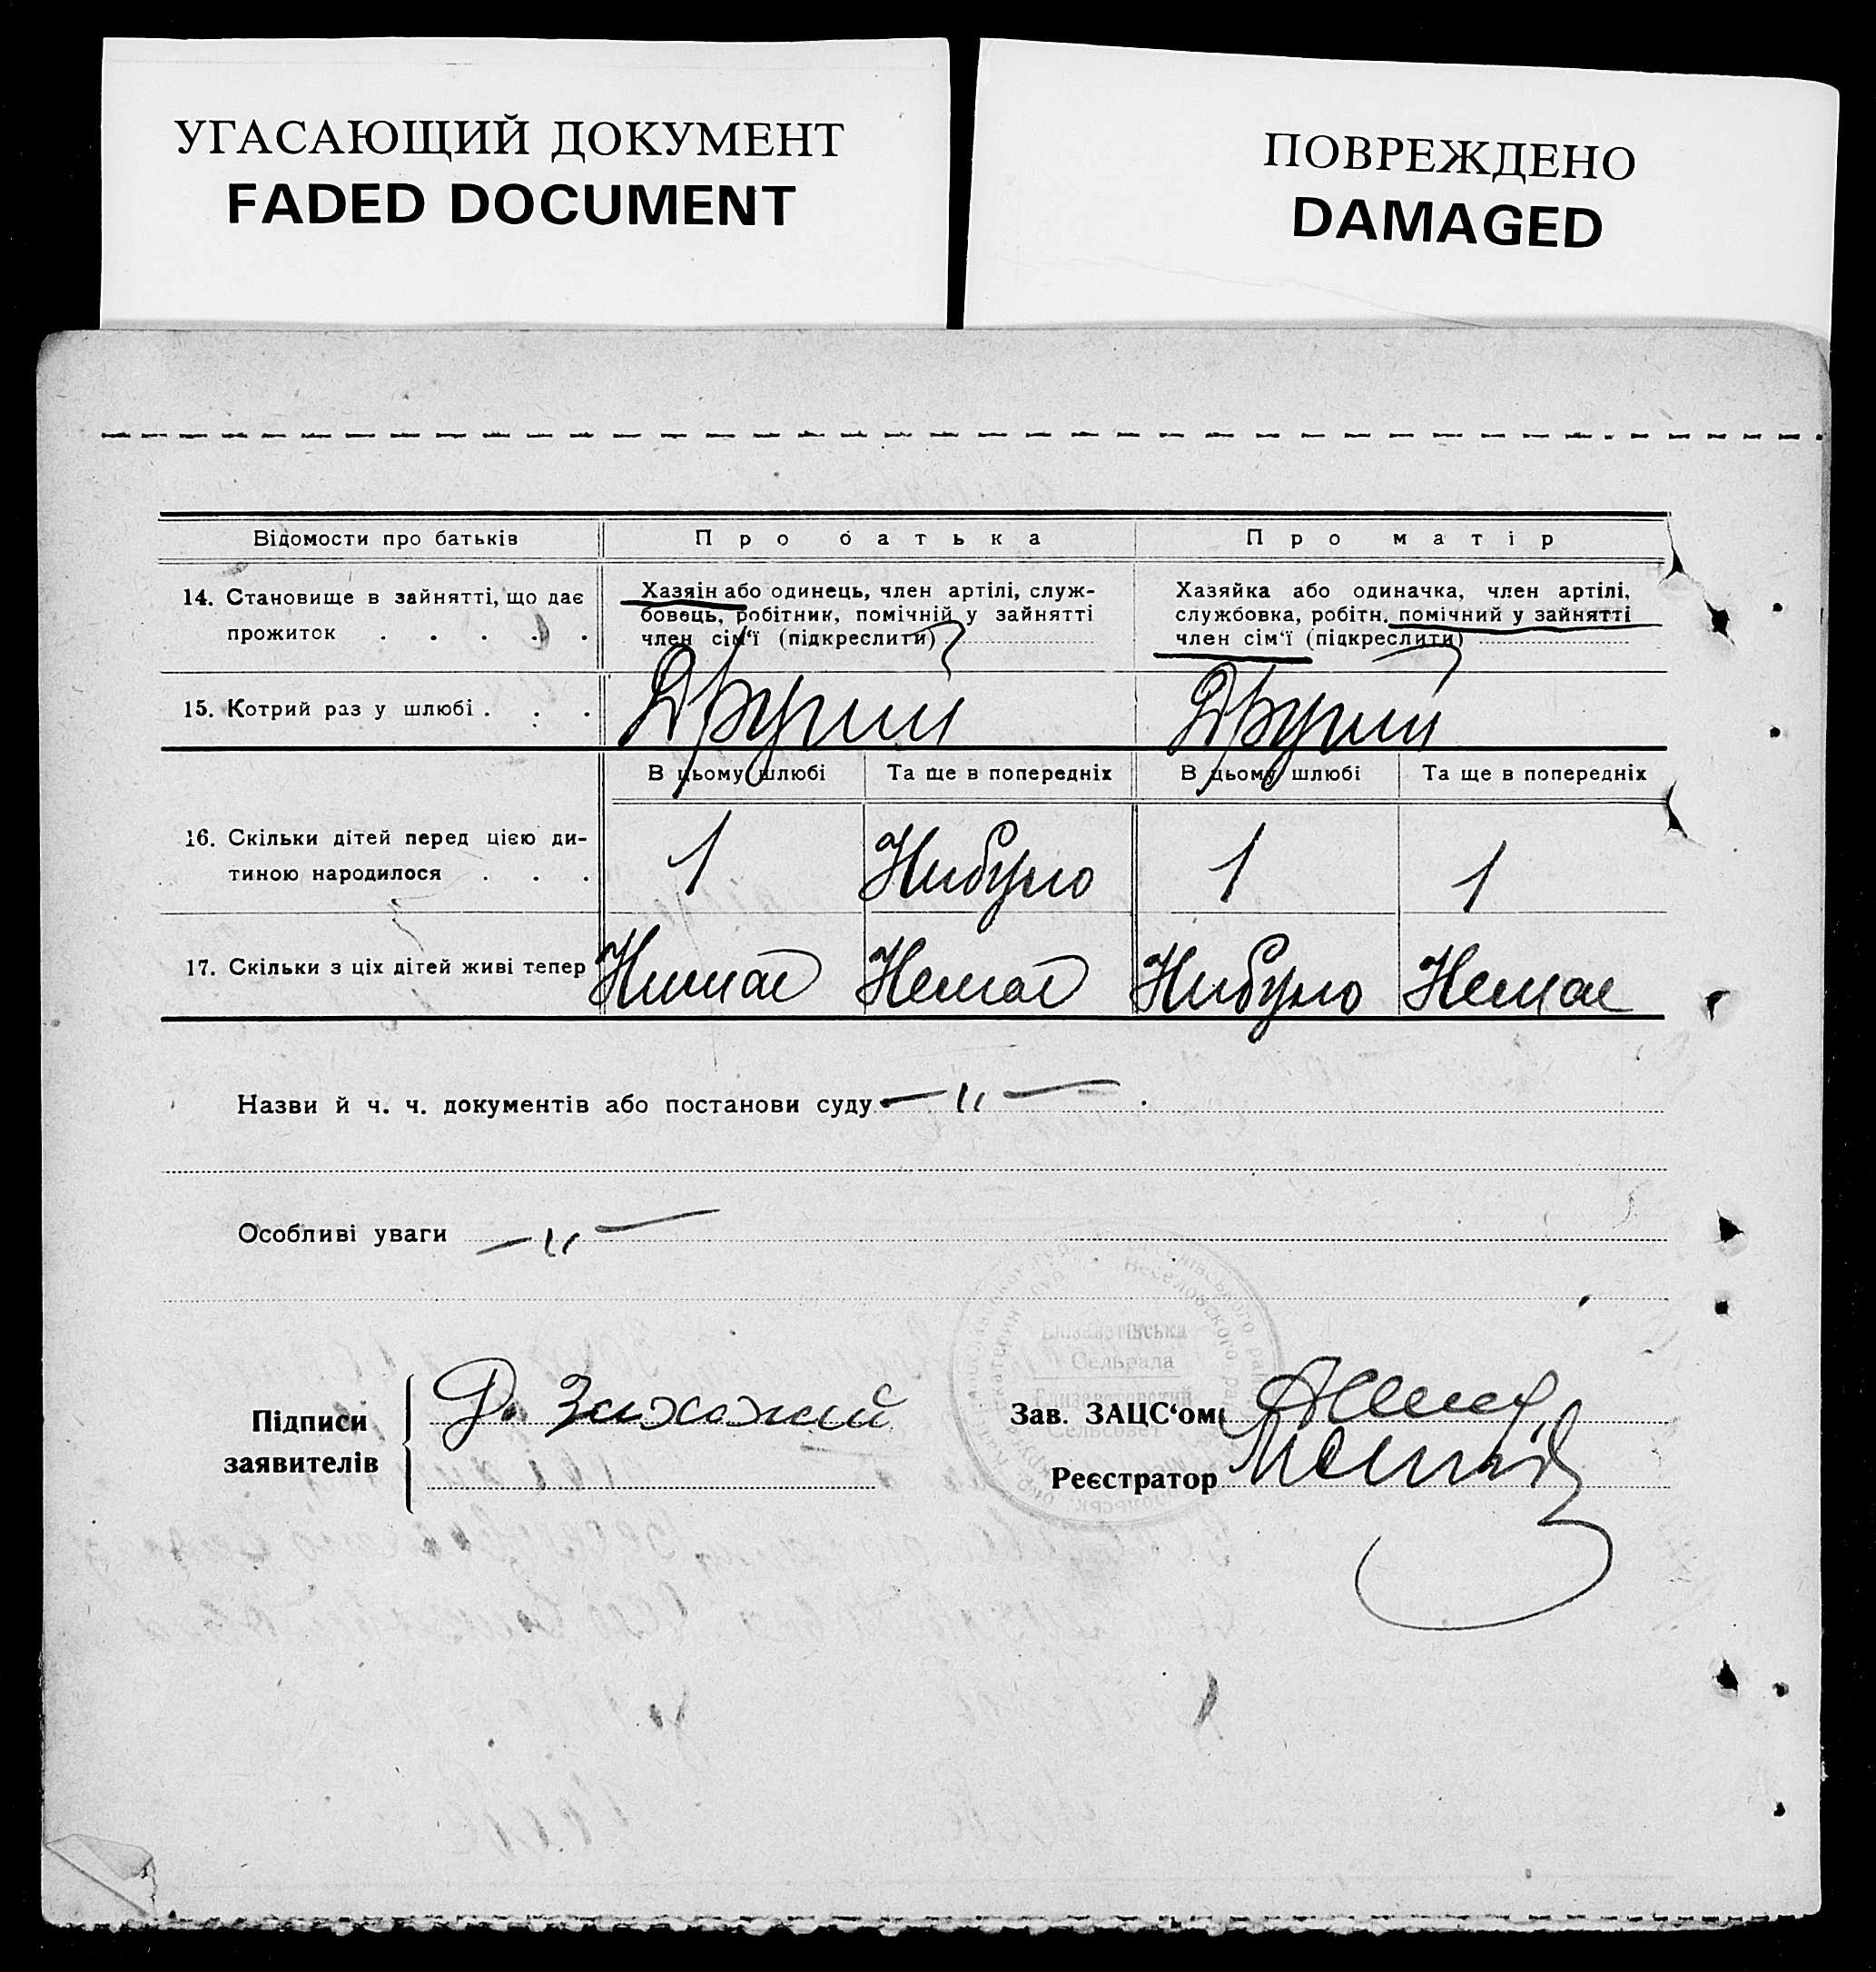 УГАСАЮЩИЙ ДОКУМЕНТ
FADED DOCUMENT
ПОВРЕЖДЕНО
DAMAGED
Відомости про батьків
Про батька
Про матір
14. Становище в зайнятті, що дає
прожиток . . . . .
Хазяін або одинець, член артілі, служ-
бовець, робітник, помічній у зайнятті
член сім'ї (підкреслити)
Хазяйка або одиначка, член артілі,
службовка, робітн. помічний у зайнятті
член сім'ї (підкреслити)
15. Котрий раз у шлюбі . . .
Другий
Другий
В цьому шлюбі
Та ще в попередніх
В цьому шлюбі
Та ще в попередніх
16. Скільки дітей перед цією ди-
тиною народилося . . .
1
Нибуло
1
1
17. Скільки з ціх дітей живі тепер
Нимає
Немає
Нибуло
Немає
Назви й ч. ч. документів або постанови суду —〃—
Особливі уваги —〃—
Єлізаветівська
Сельрада
Елизаветовский
Сельсовет
Підписи
заявителів
Д.
Зав. ЗАЦС'ом
Реєстратор